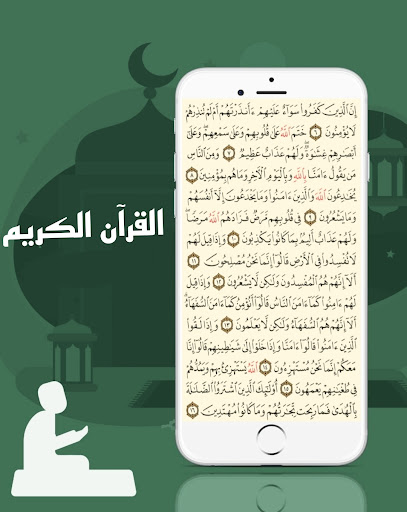 القرآن الكريم
إِنَّ ٱلَّذِينَ كَفَرُوا۟ سَوَآءٌ عَلَيْهِمْ ءَأَنذَرْتَهُمْ أَمْ لَمْ تُنذِرْهُمْ
لَا يُؤْمِنُونَ ٦ خَتَمَ ٱللَّهُ عَلَىٰ قُلُوبِهِمْ وَعَلَىٰ سَمْعِهِمْ وَعَلَىٰٓ
أَبْصَٰرِهِمْ غِشَٰوَةٌ وَلَهُمْ عَذَابٌ عَظِيمٌ ٧ وَمِنَ ٱلنَّاسِ
مَن يَقُولُ ءَامَنَّا بِٱللَّهِ وَبِٱلْيَوْمِ ٱلْءَاخِرِ وَمَا هُم بِمُؤْمِنِينَ ٨
يُخَٰدِعُونَ ٱللَّهَ وَٱلَّذِينَ ءَامَنُوا۟ وَمَا يَخْدَعُونَ إِلَّآ أَنفُسَهُمْ
وَمَا يَشْعُرُونَ ٩ فِى قُلُوبِهِم مَّرَضٌ فَزَادَهُمُ ٱللَّهُ مَرَضًا
وَلَهُمْ عَذَابٌ أَلِيمٌۢ بِمَا كَانُوا۟ يَكْذِبُونَ ١٠ وَإِذَا قِيلَ لَهُمْ
لَا تُفْسِدُوا۟ فِى ٱلْأَرْضِ قَالُوٓا۟ إِنَّمَا نَحْنُ مُصْلِحُونَ ١١
أَلَآ إِنَّهُمْ هُمُ ٱلْمُفْسِدُونَ وَلَٰكِن لَّا يَشْعُرُونَ ١٢ وَإِذَا قِيلَ
لَهُمْ ءَامِنُوا۟ كَمَآ ءَامَنَ ٱلنَّاسُ قَالُوٓا۟ أَنُؤْمِنُ كَمَآ ءَامَنَ ٱلسُّفَهَآءُ
أَلَآ إِنَّهُمْ هُمُ ٱلسُّفَهَآءُ وَلَٰكِن لَّا يَعْلَمُونَ ١٣ وَإِذَا لَقُوا۟
ٱلَّذِينَ ءَامَنُوا۟ قَالُوٓا۟ ءَامَنَّا وَإِذَا خَلَوْا۟ إِلَىٰ شَيَٰطِينِهِمْ قَالُوٓا۟ إِنَّا
مَعَكُمْ إِنَّمَا نَحْنُ مُسْتَهْزِءُونَ ١٤ ٱللَّهُ يَسْتَهْزِئُ بِهِمْ وَيَمُدُّهُمْ
فِى طُغْيَٰنِهِمْ يَعْمَهُونَ ١٥ أُو۟لَٰٓئِكَ ٱلَّذِينَ ٱشْتَرَوُا۟ ٱلضَّلَٰلَةَ
بِٱلْهُدَىٰ فَمَا رَبِحَت تِّجَٰرَتُهُمْ وَمَا كَانُوا۟ مُهْتَدِينَ ١٦